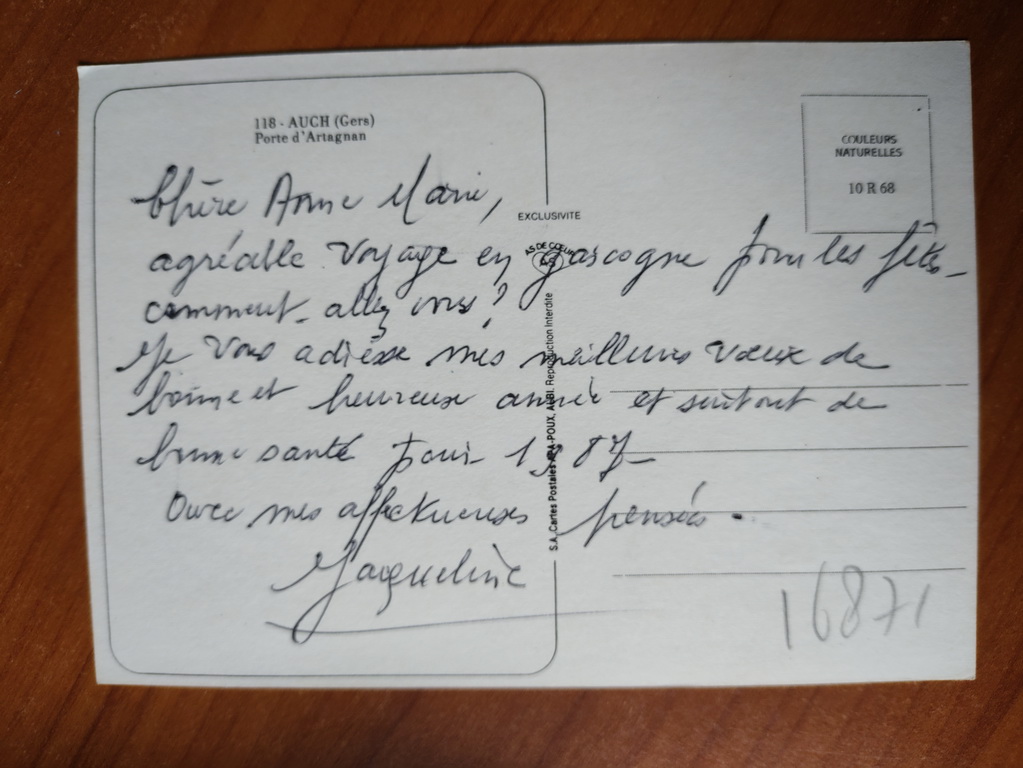 118 - AUCH (Gers)
Porte d'Artagnan
COULEURS
NATURELLES
10 R 68
EXCLUSIVITE
AS DE COEUR
Chère Anne Marie,
agréable voyage en gascogne pour les fêtes
comment allez vous ?
Je vous adresse mes meilleurs vœux de
bonne et heureuse année et surtout de
bonne santé pour 1987
Avec mes affectueuses pensées.
Jacqueline
S.A. Cartes Postales APA-POUX, ALBI. Reproduction Interdite
16871